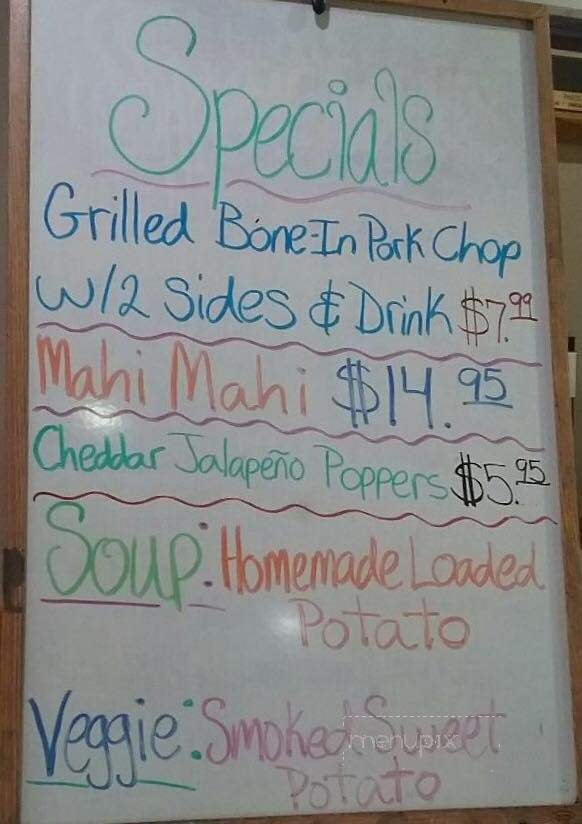 Specials
Grilled Bone-In Pork Chop
w/2 Sides & Drink $7.99
Mahi Mahi $14.95
Cheddar Jalapeño Poppers $5.95
Soup: Homemade Loaded
Potato
Veggie: Smoked Sweet
menupix
Potato